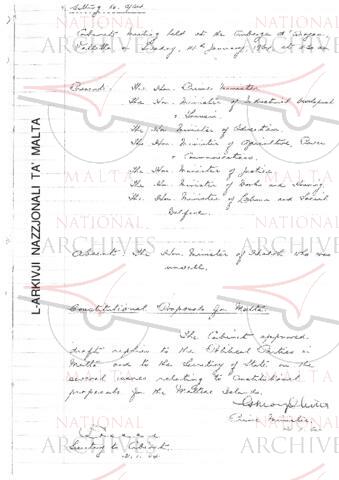 Cabinet Meeting held at the Auberge d'Aragon
Valletta on Tuesday, 21st January, 1964 at
Present: The Hon. Prime Minister
The Hon. Minister of Industrial Development
& Tourism.
The Hon. Minister of Education.
The Hon. Minister of Agriculture, Power
& Communications.
The Hon. Minister of Justice
The Hon. Minister of Works and Housing.
The Hon. Minister of Labour and Social
Welfare.
Absent: The Hon. Minister of Health who was
unwell.
Constitutional Proposals for Malta.
The Cabinet approved
draft replies to the Political Parties in
Malta and to the Secretary of State on the
several issues relating to Constitutional
proposals for the Maltese Islands.
Prime Minister
Secretary to Cabinet
21.1.64
L-ARKIVJI NAZZJONALI TA' MALTA
NATIONAL
MALTA
ARCHIVES